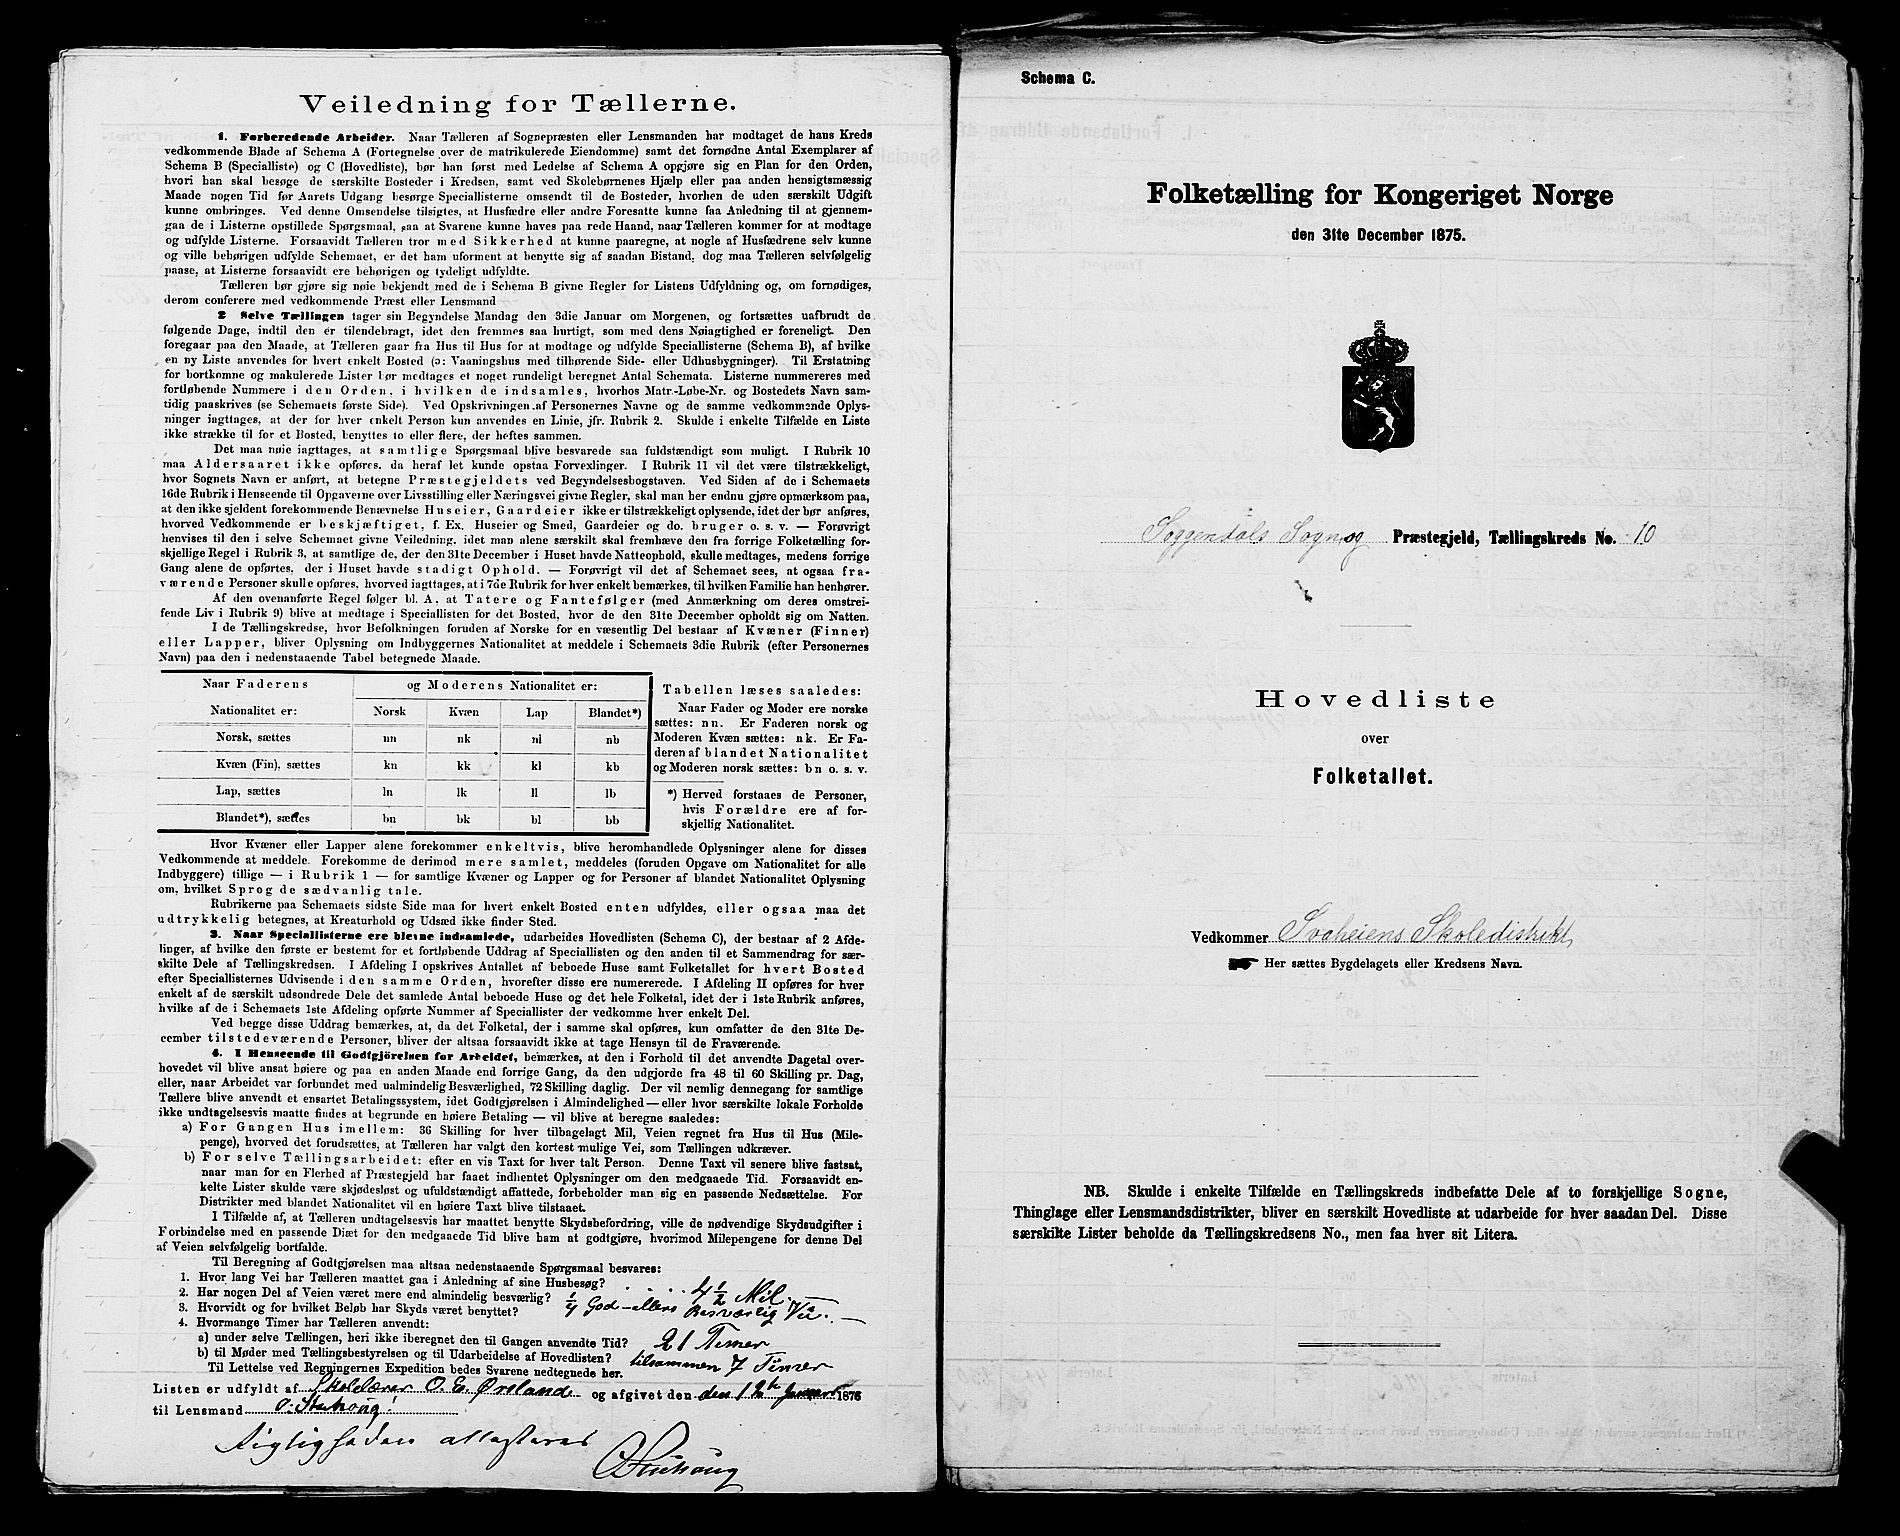 Veiledning for Tællerne.
1. Forberedende Arbeider. Naar Tælleren af Sognepræsten eller Lensmanden har modtaget de hans Kreds
vedkommende Blade af Schema A (Fortegnelse over de matrikulerede Eiendomme) samt det fornødne Antal Exemplarer af
Schema B (Specialliste) og C (Hovedliste), bør han først med Ledelse af Schema A opgjøre sig en Plan for den Orden,
hvori han skal besøge de særskilte Bosteder i Kredsen, samt ved Skolebørnenes Hjælp eller paa anden hensigtsmæssig
Maade nogen Tid før Aarets Udgang besørge Speciallisterne omsendt til de Bosteder, hvorhen de uden særskilt Udgift
kunne ombringes. Ved denne Omsendelse tilsigtes, at Husfædre eller andre Foresatte kunne faa Anledning til at gjennem-
gaa de i Listerne opstillede Spørgsmaal, saa at Svarene kunne haves paa rede Haand, naar Tælleren kommer for at modtage
og udfylde Listerne. Forsaavidt Tælleren tror med Sikkerhed at kunne paaregne, at nogle af Husfædrene selv kunne
og ville behørigen udfylde Schemaet, er det ham uforment at benytte sig af saadan Bistand, dog maa Tælleren selvfølgelig
paase, at Listerne forsaavidt ere behørigen og tydeligt udfyldte.
Tælleren bør gjøre sig nøie bekjendt med de i Schema B givne Regler for Listens Udfyldning og, om fornødiges,
derom conferere med vedkommende Præst eller Lensmand
2 Selve Tællingen tager sin Begyndelse Mandag den 3die Januar om Morgenen, og fortsættes uafbrudt de
følgende Dage, indtil den er tilendebragt, idet den fremmes saa hurtigt, som med dens Nøiagtighed er foreneligt. Den
foregaar paa den Maade, at Tælleren gaar fra Hus til Hus for at modtage og udfylde Speciallisterne (Schema B), af hvilke
en ny Liste anvendes for hvert enkelt Bosted (ɔ: Vaaningshus med tilhørende Side- eller Udhusbygninger). Til Erstatning
for bortkomne og makulerede Lister bør medtages et noget rundeligt beregnet Antal Schemata. Listerne nummereres med
fortløbende Nummere i den Orden, i hvilken de indsamles, hvorhos Matr.-Løbe-Nr. og Bostedets Navn sam-
tidig paaskrives (se Schemaets første Side). Ved Opskrivningen af Personernes Navne og de samme vedkommende Oplys-
ninger iagttages, at der for hver enkelt Person kun anvendes en Linie, jfr. Rubrik 2. Skulde i enkelte Tilfælde en Liste
ikke strække til for et Bosted, benyttes to eller flere, der heftes sammen.
Det maa nøie iagttages, at samtlige Spørgsmaal blive besvarede saa fuldstændigt som muligt. I Rubrik 10
maa Aldersaaret ikke opføres, da heraf let kunde opstaa Forvexlinger. I Rubrik 11 vil det være tilstrækkeligt,
hvor Sognets Navn er anført, at betegne Præstegjeldets ved Begyndelsesbogstaven. Ved Siden af de i Schemaets
16de Rubrik i Henseende til Opgaverne over Livsstilling eller Næringsvei givne Regler, skal man her endnu gjøre opmærksom paa,
at den ikke sjeldent forekommende Benævnelse Huseier, Gaardeier ikke er tilstrækkeligt oplysende, idet der bør anføres,
hvorved Vedkommende er beskjæftiget, f. Ex. Huseier og Smed, Gaardeier og do. bruger o. s. v. — Forøvrigt
henvises til den i selve Schemaet givne Veiledning, idet man alene særskilt skal fremhæve den fra forrige Folketælling for-
skjellige Regel i Rubrik 3, at samtlige de, der den 31te December i Huset havde Natteophold, skulle medtages, medens forrige
Gang alene de opførtes, der i Huset havde stadigt Ophold. — Forøvrigt vil det af Schemaet sees, at ogsaa fra-
værende Personer skulle opføres, hvorved iagttages, at i 7de Rubrik for hver enkelt bemærkes, til hvilken Familie han henhører.
Af den ovenanførte Regel følger bl. A. at Tatere og Fantefølger (med Anmærkning om deres omstrei-
fende Liv i Rubrik 9) blive at medtage i Speciallisten for det Bosted, hvor de den 31te December opholdt sig om Natten.
I de Tællingskredse, hvor Befolkningen foruden af Norske for en væsentlig Del bestaar af Kvæner (Finner)
eller Lapper, bliver Oplysning om Indbyggernes Nationalitet at meddele i Schemaets 3die Rubrik (efter Personernes
Navn) paa den i nedenstaaende Tabel betegnede Maade.
Naar Faderens og Moderens Nationalitet er:
Nationalitet er: Norsk Kvæn Lap Blandet*)
Norsk, sættes nn nk nl nb
Kvæn (Fin), sættes kn kk kl kb
Lap, sættes ln lk ll lb
Blandet*), sættes bn bk bl bb
Tabellen læses saaledes:
Naar Fader og Moder ere norske
sættes: nn. Er Faderen norsk og
Moderen Kvæn sættes: nk. Er Fa-
deren af blandet Nationalitet
og Moderen norsk sættes: bn o. s. v.
*) Herved forstaaes de Personer,
hvis Forældre ere af for-
skjellig Nationalitet.
Hvor Kvæner eller Lapper alene forekommer enkeltvis, blive heromhandlede Oplysninger alene for disses
Vedkommende at meddele. Forekomme de derimod mere samlet, meddeles (foruden Opgave om Nationalitet for alle
Indbyggere) tillige — i Rubrik 1 — for samtlige Kvæner og Lapper og for Personer af blandet Nationalitet Oplysning
om, hvilket Sprog de sædvanlig tale.
Rubrikerne paa Schemaets sidste Side maa for hvert enkelt Bosted enten udfyldes, eller ogsaa maa det
udtrykkelig betegnes, at Kreaturhold og Udsæd ikke finder Sted.
3. Naar Speciallisterne ere blevne indsamlede, udarbeides Hovedlisten (Schema C), der bestaar af 2 Afde-
linger, af hvilke den første er bestemt for et fortløbende Uddrag af Speciallisten og den anden til et Sammendrag for sær-
skilte Dele af Tællingskredsen. I Afdeling I opskrives Antallet af beboede Huse samt Folketallet for hvert Bosted
efter Speciallisternes Udvisende i den samme Orden, hvorefter disse ere numererede. I Afdeling II opføres for hver
enkelt af de særskilt udsondrede Dele det samlede Antal beboede Huse og det hele Folketal, idet der i 1ste Rubrik anføres,
hvilke af de i Schemaets 1ste Afdeling opførte Nummer af Speciallister der vedkomme hver enkelt Del.
Ved begge disse Uddrag bemærkes, at, da det Folketal, der i samme skal opføres, kun omfatter de den 31te De-
cember tilstedeværende Personer, bliver der altsaa forsaavidt ikke at tage Hensyn til de Fraværende.
4. I Henseende til Godtgjörelsen for Arbeidet, bemærkes, at den i Forhold til det anvendte Dagetal over-
hovedet vil blive ansat høiere og paa en anden Maade end forrige Gang, da den udgjorde fra 48 til 60 Skilling pr. Dag,
eller, naar Arbeidet var forbundet med ualmindelig Besværlighed, 72 Skilling daglig. Der vil nemlig dennegang for samtlige
Tællere blive anvendt et ensartet Betalingssystem, idet Godtgjørelsen i Almindelighed — eller hvor særskilte lokale Forholde
ikke undtagelsesvis maatte findes at begrunde en høiere Betaling — vil blive at beregne saaledes:
a) For Gangen Hus imellem: 36 Skilling for hver tilbagelagt Mil, Veien regnet fra Hus til Hus (Mile-
penge), hvorved det forudsættes, at Tælleren har valgt den kortest mulige Vei, som Tællingen udkræver.
b) For selve Tællingsarbeidet: efter en vis Taxt for hver talt Person. Denne Taxt vil senere blive fastsat,
naar man for en Flerhed af Præstegjeld har faaet indhentet Oplysninger om den medgaaede Tid. Forsaavidt en-
kelte Lister skulde være skjødesløst og ufuldstændigt affattede, forbeholder man sig en passende Nedsættelse. For
Distrikter med blandet Nationalitet vil en høiere Taxt blive tilstaaet.
I Tilfælde af, at Tælleren undtagelsesvis har maattet benytte Skydsbefordring, ville de nødvendige Skydsudgifter i
Forbindelse med en passende Diæt for den medgaaede Tid blive ham at godtgjøre, hvorimod Milepengene for denne Del
af Veien selvfølgelig bortfalde.
Til Beregning af Godtgjørelsen maa altsaa nedenstaaende Spørgsmaal besvares:
1. Hvor lang Vei har Tælleren maattet gaa i Anledning af sine Husbesøg? 4 1/2 Mil.
2. Har nogen Del af Veien været mere end almindelig besværlig? 1/4 God – ellers Besværlig Vei. —
3. Hvorvidt og for hvilket Beløb har Skyds været benyttet?
4. Hvormange Timer har Tælleren anvendt:
a) under selve Tællingen, heri ikke iberegnet den til Gangen anvendte Tid? 21 Timer
b) til Møder med Tællingsbestyrelsen og til Udarbeidelse af Hovedlisten? tilsammen 7 Timer
Til Lettelse ved Regningernes Expedition bedes Svarene nedtegnede her.
Listen er udfyldt af Skolelærer O. E. Ørsland og afgivet den den 12te Januar 1876
til Lensmand
Rigtigheden attesteres
Schema C.
Folketælling for Kongeriget Norge
den 31te December 1875.
Soggendals Sogn og Præstegjeld, Tællingskreds No. 10
Hovedliste
over
Folketallet.
Vedkommer Svaheiens Skoledistrikt
Her sættes Bygdelagets eller Kredsens Navn.
NB. Skulde i enkelte Tilfælde en Tællingskreds indbefatte Dele af to forskjellige Sogne,
Thinglage eller Lensmandsdistrikter, bliver en særskilt Hovedliste at udarbeide for hver saadan Del. Disse
særskilte Lister beholde da Tællingskredsens No., men faa hver sit Litera.